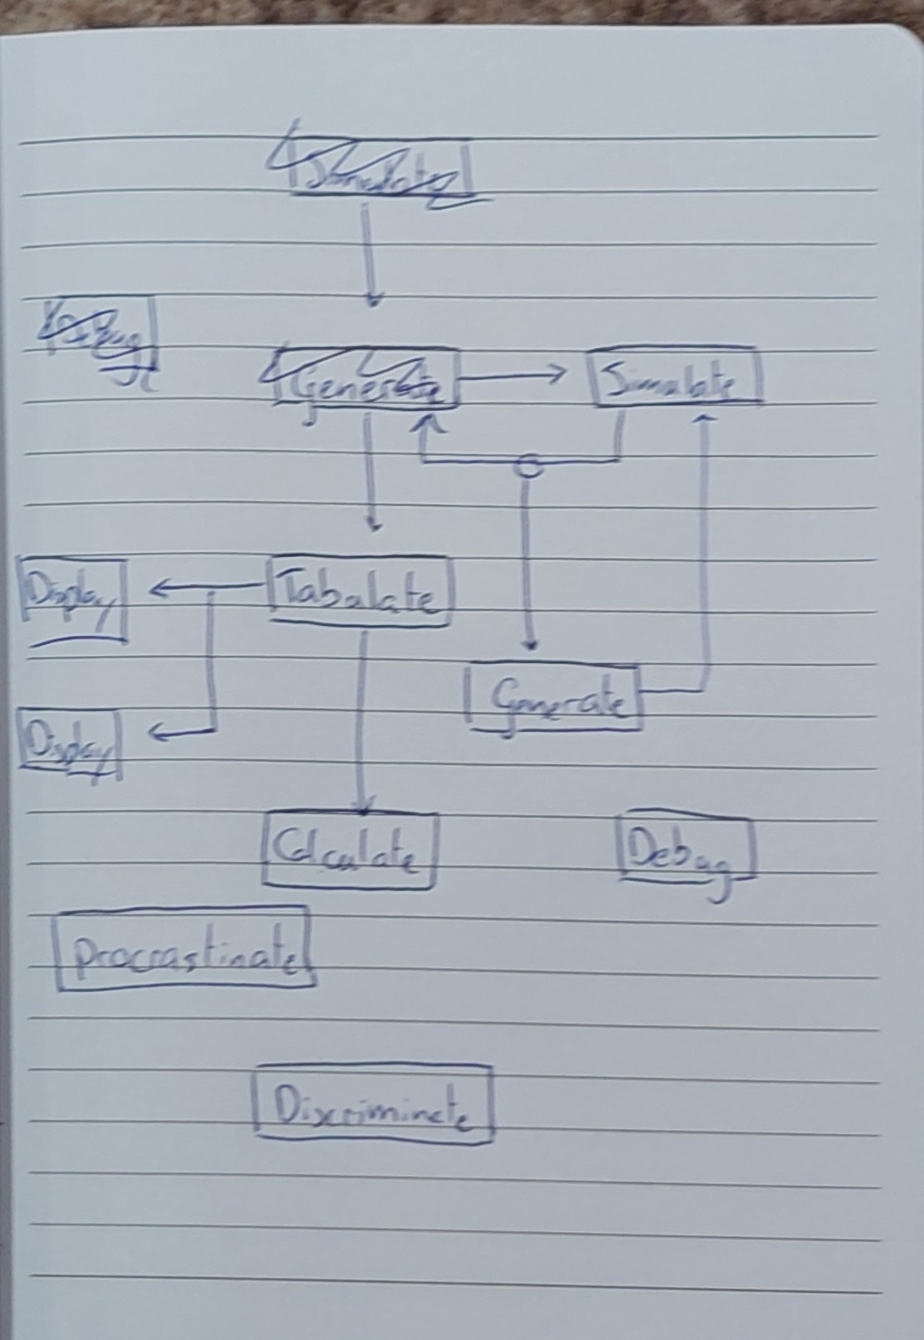 Simulate
Debug
Generate
Simulate
Display
Tabulate
Generate
Display
Calculate
Debug
Procrastinate
Discriminate